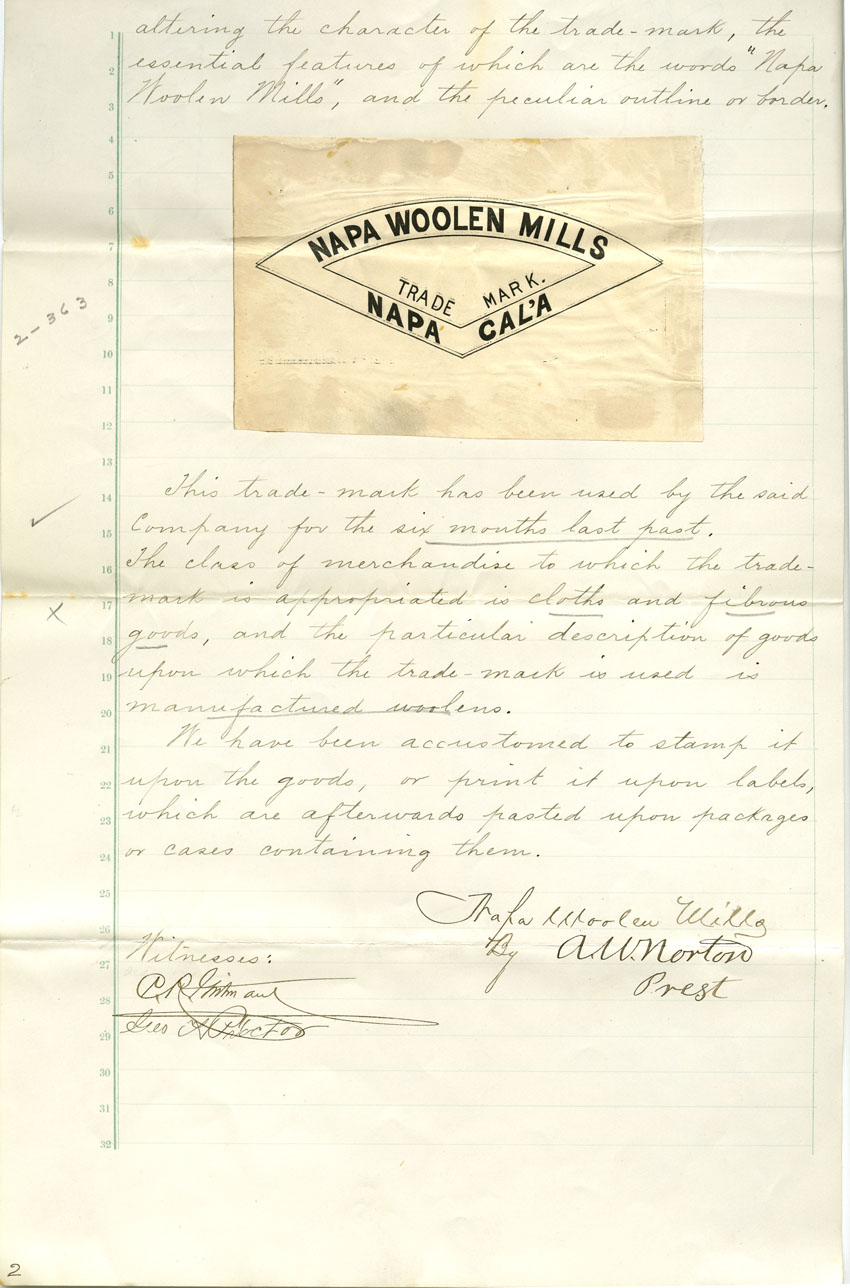 altering the character of the trade-mark, the
essential features of which are the words "Napa
Woolen Mills", and the peculiar outline or border.
NAPA WOOLEN MILLS
TRADE MARK.
NAPA CAL'A
2-363
This trade-mark has been used by the said
Company for the six months last past.
The class of merchandise to which the trade-
mark is appropriated is cloths and fibrous
goods, and the particular description of goods
upon which the trade-mark is used is
manufactured woolens.
We have been accustomed to stamp it
upon the goods, or print it upon labels,
which are afterwards pasted upon packages
or cases containing them.
Napa Woolen Mills
By A.W. Norton
Prest
Witnesses:
C.R.
Geo A
1
2
3
4
5
6
7
8
9
10
11
12
13
14
15
16
17
18
19
20
21
22
23
24
25
26
27
28
29
30
31
32
2